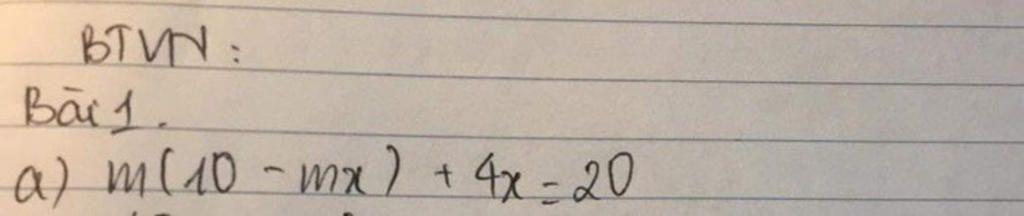 BTVN:
Bài 1.
a) m(10 - mx) + 4x = 20